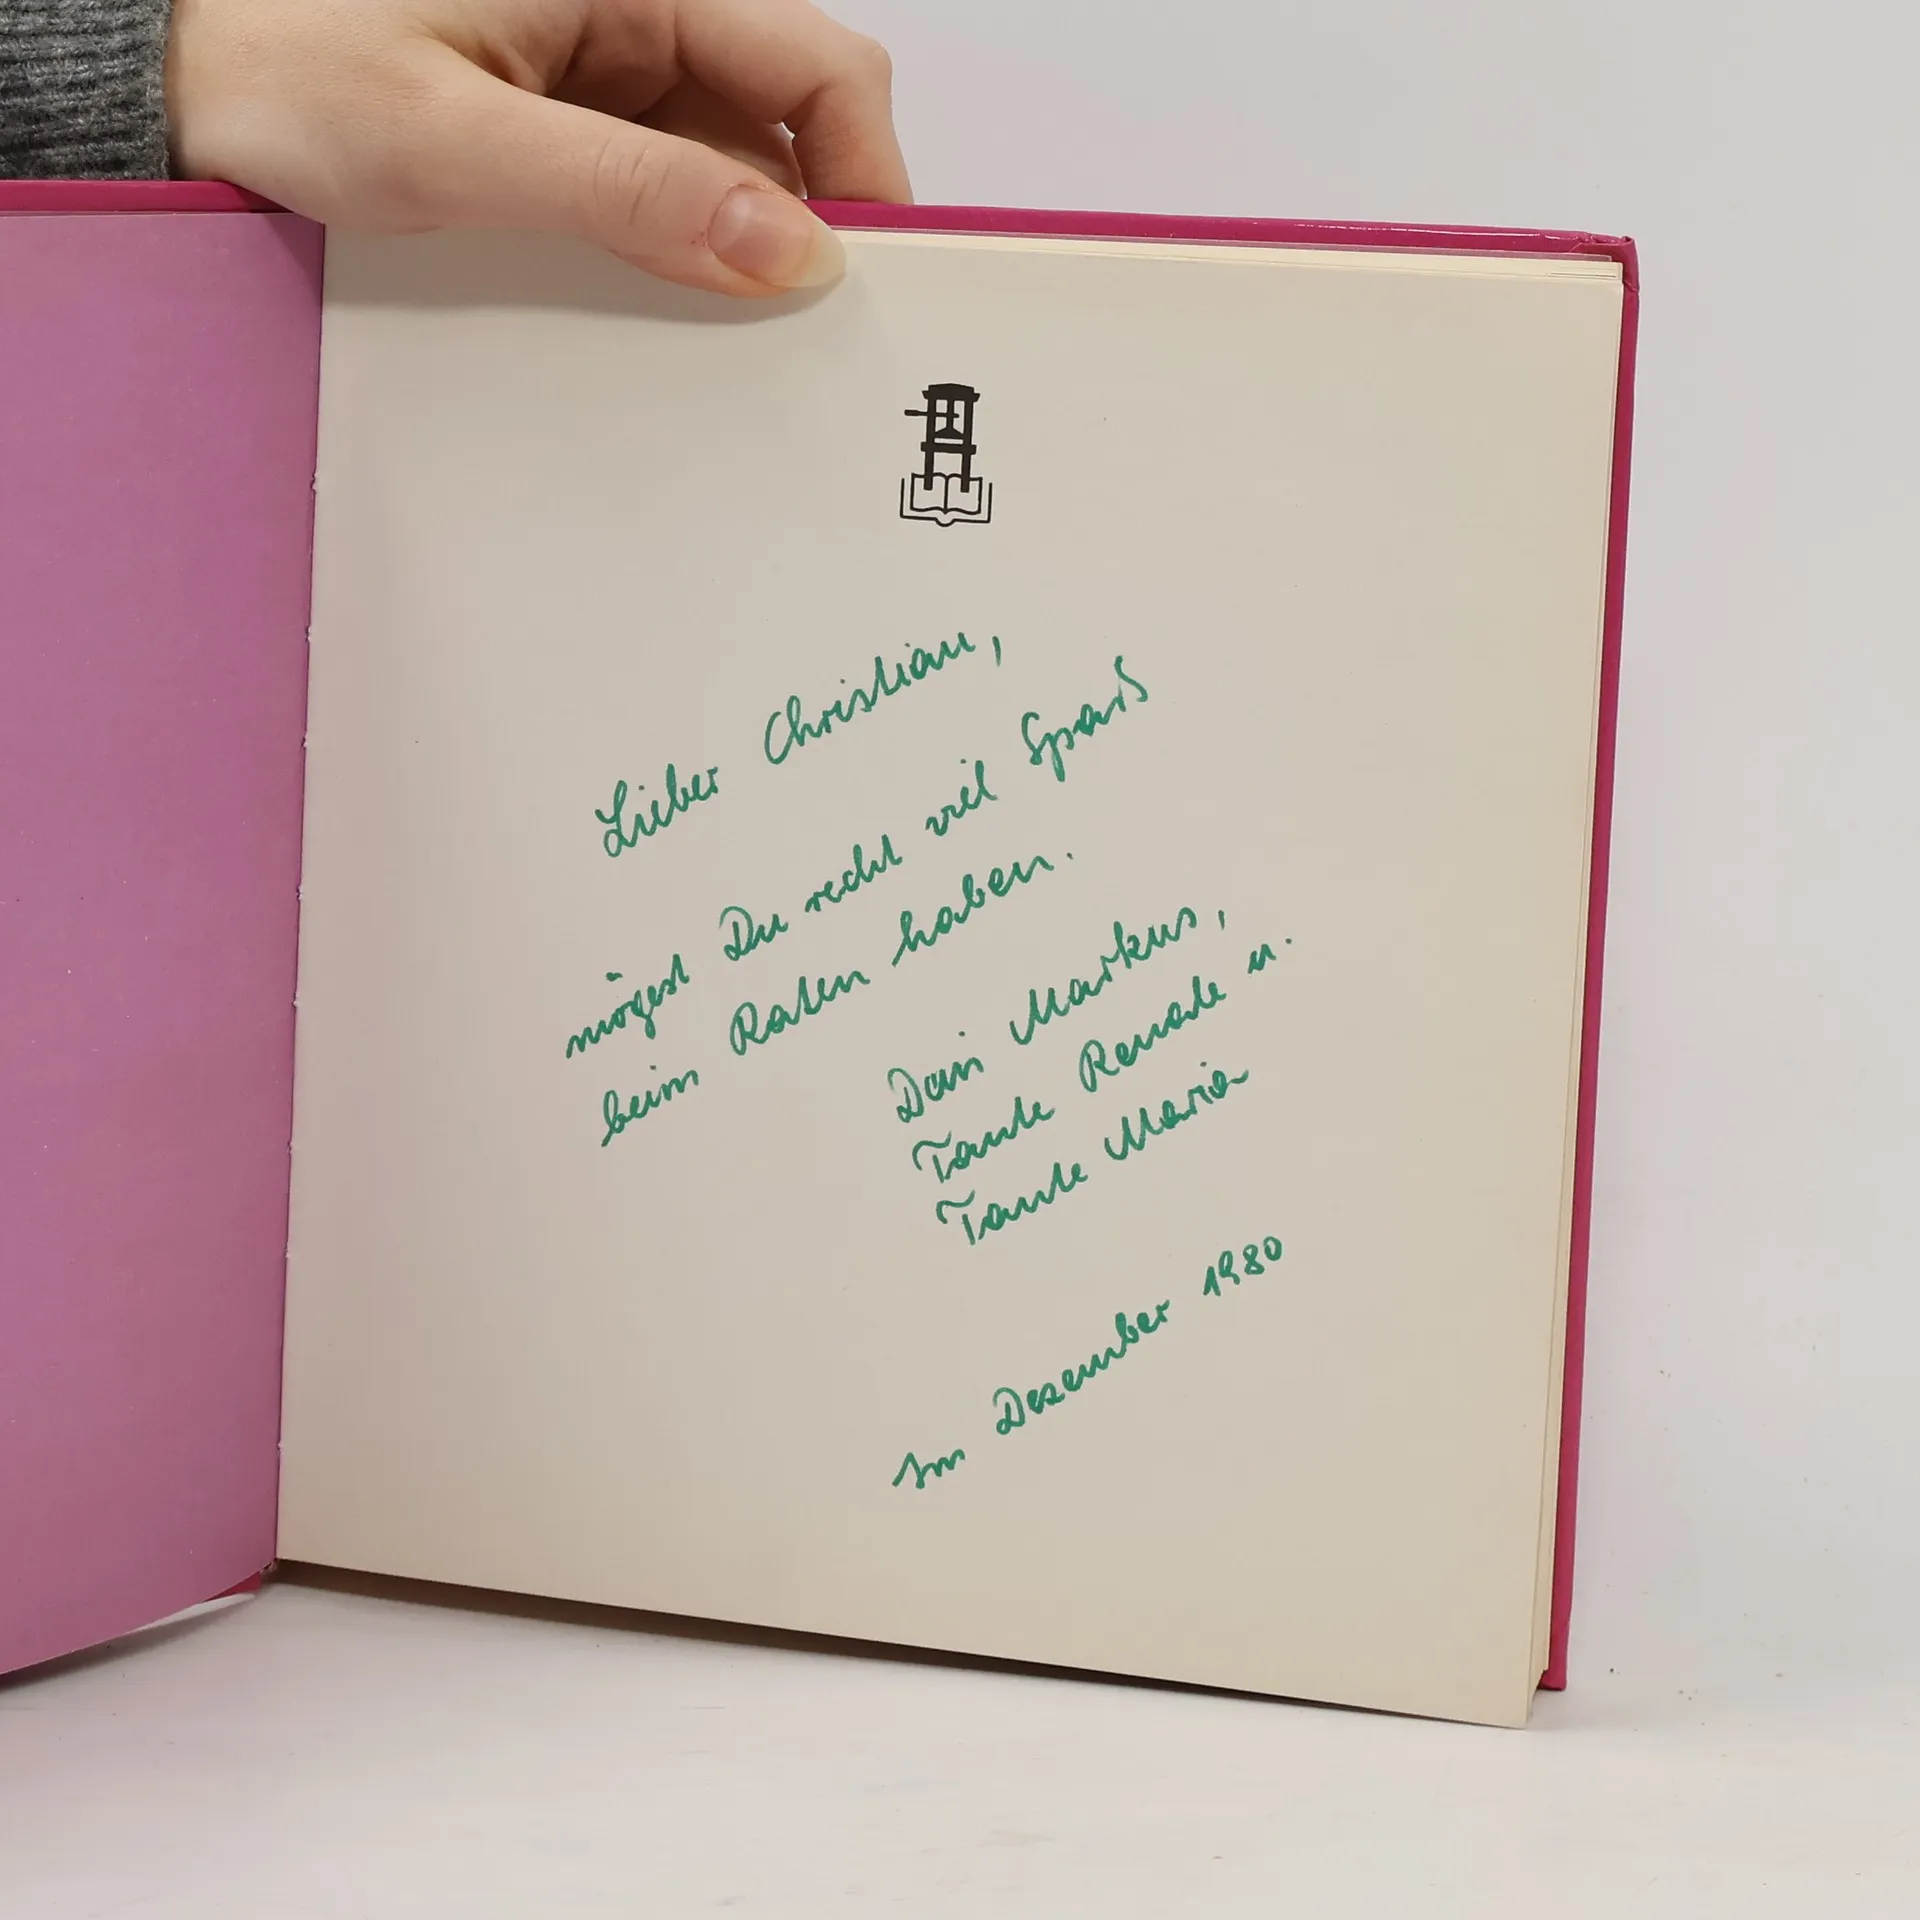 Lieber Christian,
mögest Du recht viel Spaß
beim Raten haben.
Dein Markus,
Tante Renate u.
Tante Maria
Im Dezember 1980